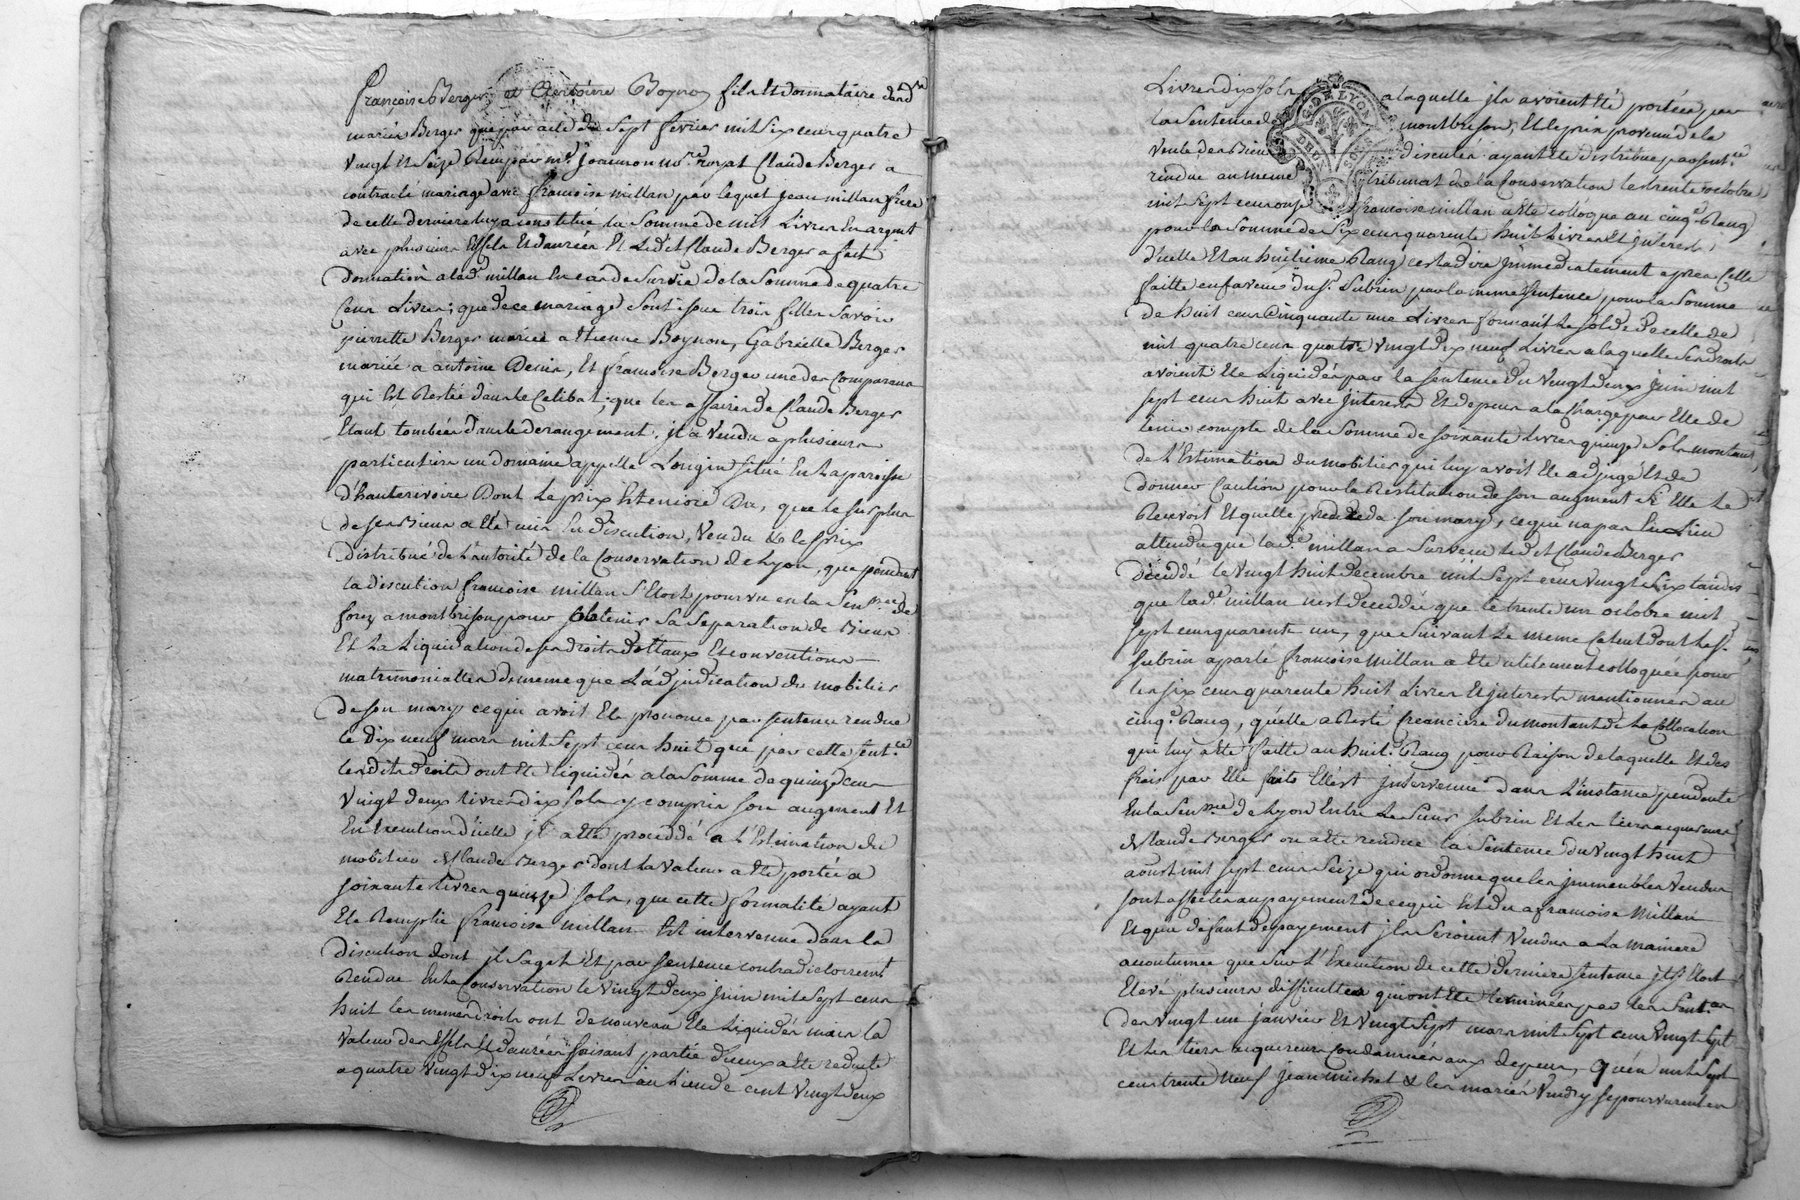 françoise Berger et Antoine Boynon fils et donnataire desd.
mariés Berger que par acte du sept fevrier mil six cent quatre
vingt et seize Reçu par me. Jouanon no.re royal Claude Berger a
contracté mariage avec françoise millan par lequel jean millan frere
de cette derniere luy a constitué la somme de mil Livres en argent
avec plusieurs effets et danrées et Ledit Claude Berger a fait
donnation a lad. millan en cas de survie de la somme de quatre
Cens Livres; que de ce mariage sont issue trois filles savoir
pierrette Berger mariée a etienne Boynon, Gabrielle Berger
mariée a antoine Denis, Et françoise Berger une des Comparans
qui Est Restée dans le Celibat; que les affaires de Claude Berger
Etant tombées dans le derangement, il a vendu a plusieurs
particuliers un domaine appellé Longin situé En La paroisse
d'hauterivoire Dont Le prix Est encore Du, que le surplus
de ses Biens a été mis En discution, vendu et le prix
distribué de L'autorité de la Conservation de Lyon, que pendant
la discution françoise millan s'Etoit pourvu en la Sen.ssée de
forez a montbrison pour obtenir sa separation de Biens
Et La Liquidation de ses droits dottaux Et conventions
matrimonialles de meme que L'adjudication du mobilier
de son mary ce qui avoit Ete prononcé par sentence rendue
le dix neuf mars mil sept cens huit que par cette sent.ce
lesdits droits ont Eté liquidés a la somme de quinze cens
vingt deux livres dix sols y compris son augment Et
En execution d'icelle il a ette procédé a L'Estimation du
mobilier de Claude Berger dont la valeur a ete portée a
soixante livres quinze sols, que cette formalité ayant
Ete Remplie françoise millan Est intervenue dans la
discution dont il sagit Et par sentence contradictoirem.t
Rendue En la Conservation le vingt deux juin mil sept cens
huit les memes droits ont de nouveau Ete Liquidés mais la
valeur des effets Et danrées faisant partie d'iceux a ete reduite
a quatre vingt dix neuf Livres au Lieu de cent vingt deux
Livres dix sols a laquelle ils avoient Eté portées par
la sentence de montbrison, Et le prix provenu de la
vente des Biens discutés ayant Eté distribué par sent.ce
rendue au meme tribunal de la Conservation le trente octobre
mil sept cens onze françoise millan a Eté colloquée au cinq.e Rang
pour la somme de six cens quarente huit Livres Et interests
d'icelle Et au huitieme Rang cest a dire immediatement apres Celle
faitte en faveur du sr. Subrin par la meme sentence pour la somme
de huit cens Cinquante une Livres formant le solde de celle de
mil quatre cens quatre vingt dix neuf Livres a laquelle ses droits
avoient Ete Liquidés par la sentence du vingt deux juin mil
sept cens huit avec interests Et depens a la charge par Elle de
tenir compte de la somme de soixante livres quinze sols montant
de L'Estimation du mobilier qui luy avoit Ete adjugé Et de
donner Caution pour la Restitution de son augment si Elle Le
Recevoit Et quelle predeceda son mary, ce qui na pas Eu Lieu
attendu que lad.e millan a survecu ledit Claude Berger
décédé le vingt huit decembre mil sept cens vingt six tandis
que lad.e millan n'est deceddée que le trente un octobre mil
sept cens quarente un, que suivant le meme Calcul dont le s.r
subrin a parlé françoise millan a Ete utilement colloquée pour
les six cens quarente huit Livres Et interests mentionnés au
cinq.e Rang, qu'elle a Resté Creanciere du montant de La Collocation
qui luy a Ete faitte au huit.e Rang pour Raison de laquelle Et des
frais par Elle faits Elle est intervenue dans L'instance pendante
En la Sen.ssée de Lyon Entre Le Sieur Subrin Et Les tiers acquereurs
de Claude Berger ou a ete rendue la sentence du vingt huit
aoust mil sept cens seize qui ordonne que les immeubles vendus
sont affectés au payement de ce qui Est du a françoise Millan
Et que a défaut de payement ils seroient vendus a La maniere
acoutumée que sur L'Execution de cette derniere sentence il s'est
Elevé plusieurs difficultes qui ont Ete terminées par les sent.ces
des vingt un janvier Et vingt sept mars mil sept cens vingt sept
Et Les tiers acquereurs Condamnés aux depens, qu'en mil sept
cens trente neuf Jean michel & les mariés vindry se pourvurent en
G. DE LYON
DEUX SOLS